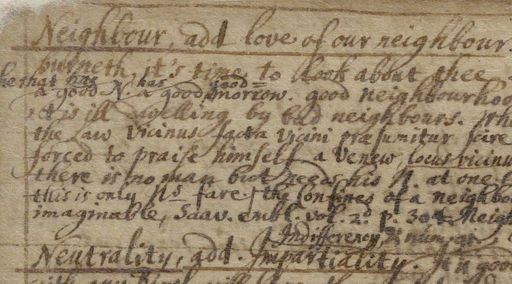 Neighbour, add love of our neighbour.
burneth, it's time to look about thee
he that has
a good N. has a good good = morrow. good neighbourhoo
it is ill dwelling by bad neighbours.
the Law Vicinus facta vicini præsumitur scire
forced to praise himself a Venew, locus vicinu
there is no man but needs his N. at one t
this is only Ns fare, the Confines of a neighbo
imaginable, Saav. embl. vol. 2d p. 304 Neigh
Indifferency,
Neutrality, add. Impartiality. it's good